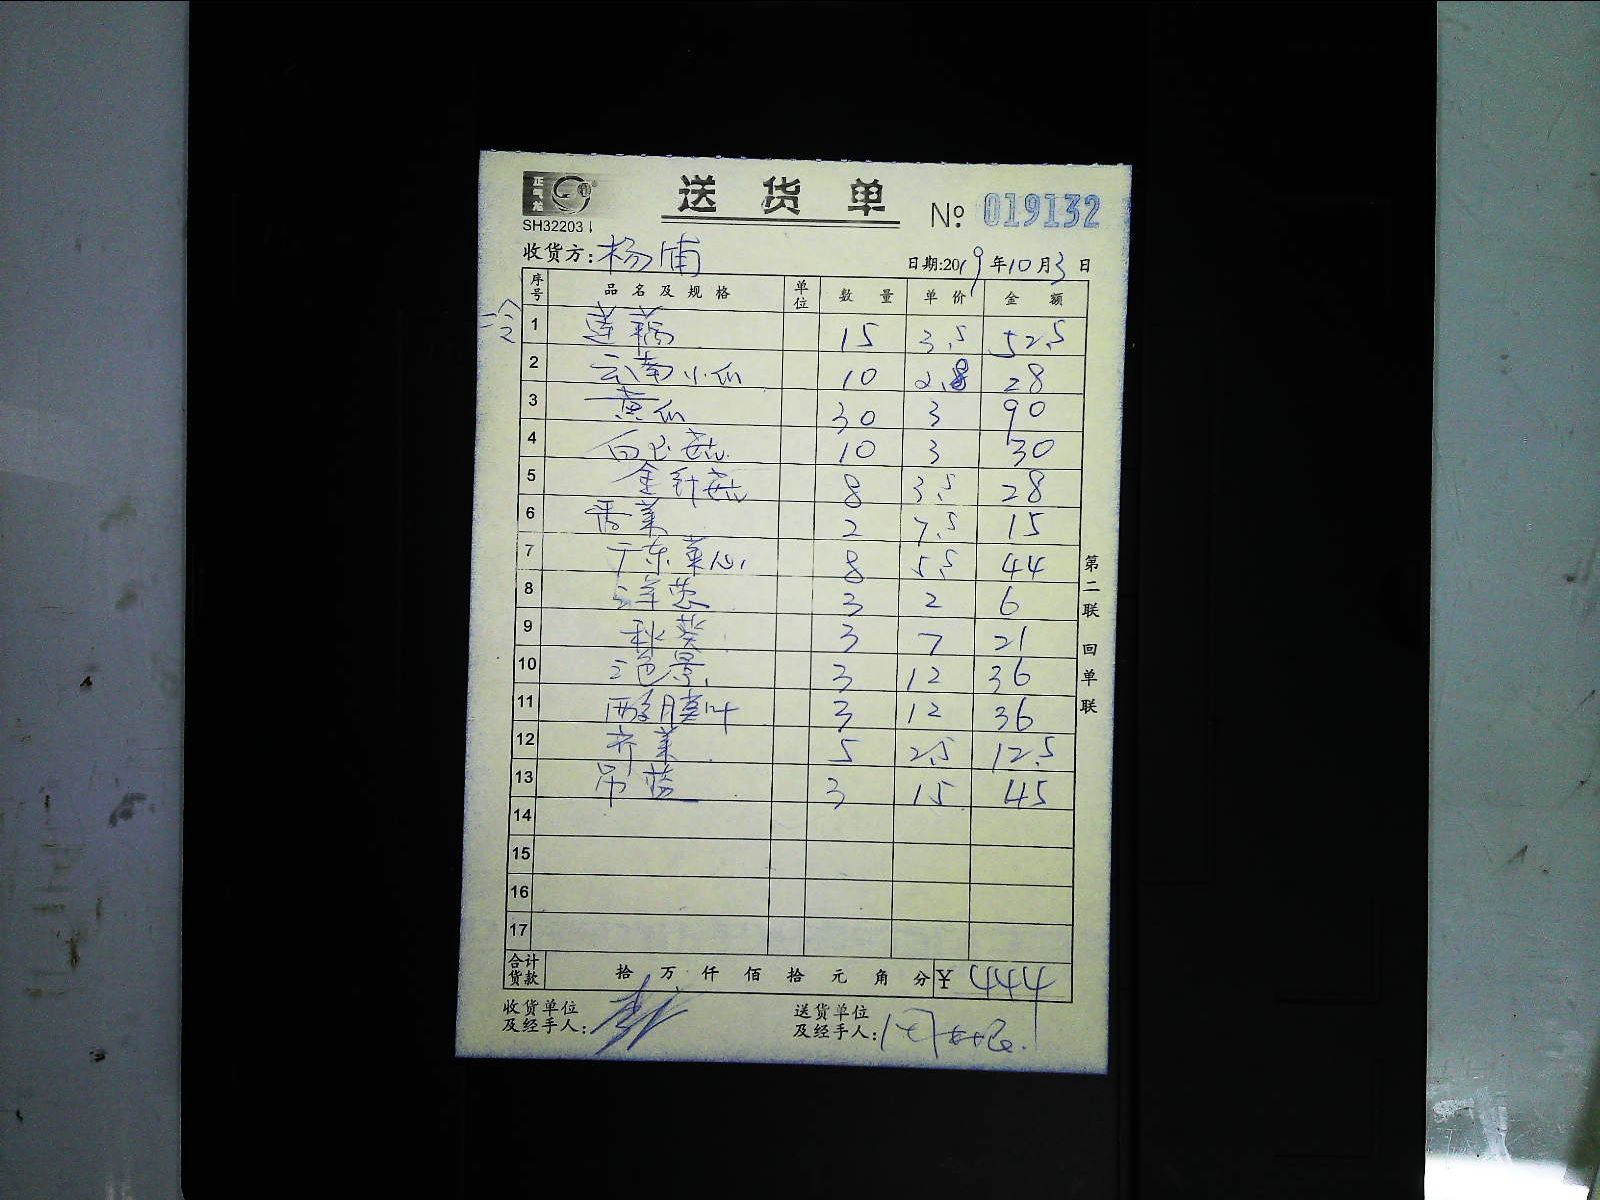 正气龙
送货单
№ 019132
SH32203
收货方: 杨浦
日期:2019年10月3日
序号 品名及规格 单位 数量 单价 金额
冷
1 莲藕 15 3.5 52.5
2 云南小瓜 10 2.8 28
3 黄瓜 30 3 90
4 白玉菇 10 3 30
5 金针菇 8 3.5 28
6 香菜 2 7.5 15
7 广东菜心 8 5.5 44
8 洋葱 3 2 6
9 秋葵 3 7 21
10 三色景 3 12 36
11 3 12 36
12 齐菜 5 2.5 12.5
13 吊蓝 3 15 45
14
15
16
17
合计货款 拾 万 仟 佰 拾 元 角 分 ¥ 444
收货单位及经手人:
送货单位及经手人:
第二联 回单联